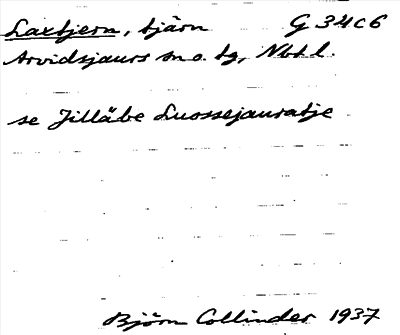 Laxtjern, tjärn G 34c6
Arvidsjaurs sn o. tg, Nbt l.
se Jilläbe Luossejauratje
Björn Collinder 1937